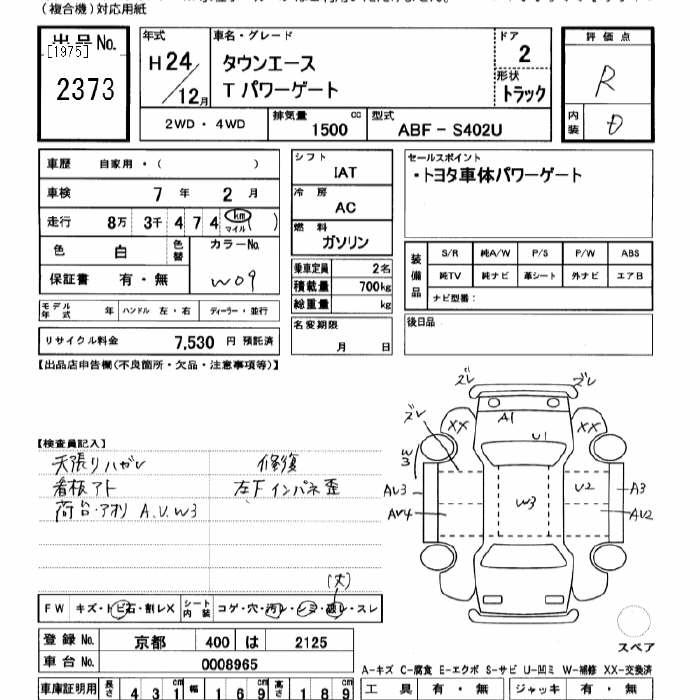 (複合機)対応用紙
出品No.
[1975]
2373
年式
H24/12月
車名・グレード
タウンエース
T パワーゲート
ドア
2
形状
トラック
評価点
R
内装
D
2WD・4WD
排気量 1500 cc
型式 ABF-S402U
車歴 自家用・( )
車検 7年 2月
走行 8万 3千 4 7 4 km マイル ( )
色 白 色替 カラーNo.
保証書 有・無 W09
モデル年式 年 ハンドル 左・右 ディーラー・並行
リサイクル料金 7,530 円 預託済
シフト
IAT
冷房
AC
燃料
ガソリン
乗車定員 2名
積載量 700kg
総重量 kg
名変期限
月 日
セールスポイント
・トヨタ車体パワーゲート
装備品
S/R 純A/W P/S P/W ABS
純TV 純ナビ 革シート 外ナビ エアB
ナビ型番:
後日品
【出品店申告欄(不良箇所・欠品・注意事項等)】
【検査員記入】
天張りハガレ
看板アト
荷台・アオリ A.U.W3
修復
左F インパネ歪
ズレ ズレ
ズレ
A1
XX XX
U1
W3
AU3
AU4
W3
U2
A3
AU2
(大)
FW キズ・トビ石・割レX シート内装 コゲ・穴・汚レ・シミ・破レ・スレ
登録No. 京都 400 は 2125
車台No. 0008965
車庫証明用 長さ 431cm 幅 169cm 高さ 189cm
スペア
A-キズ C-腐食 E-エクボ S-サビ U-凹ミ W-補修 XX-交換済
工具 有・無 ジャッキ 有・無